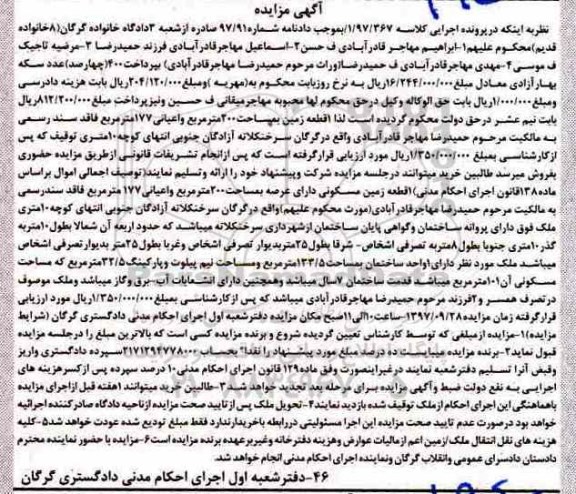 آگهی مزایده
نظربه اینکه درپرونده اجرایی کلاسه ۱/۹۷/۳۶۷بموجب دادنامه شماره۹۷/۹۱ صادره ازشعبه ۳دادگاه خانواده گرگان(۸خانواده
قدیم)محکوم علیهم۱-ابراهیم مهاجر قادرآبادی ف حسن۲-اسماعیل مهاجرقادرآبادی فرزند حمیدرضا ۳-مرضیه تاجیک
ف موسی۴-مهدی مهاجرقادرآبادی ف حمیدرضا(وراث مرحوم حمیدرضا مهاجرقادرآبادی) بپرداخت۴۰۰(چهارصد)عدد سکه
بهارآزادی معادل مبلغ۱۶/۲۴۴/۰۰۰/۰۰۰ریال به نرخ روزبابت محکوم به(مهریه )ومبلغ۲۰۴/۱۲۰/۰۰۰ریال بابت هزینه دادرسی
ومبلغ۱/۰۰۰/۰۰۰ریال بابت حق الوکاله وکیل درحق محکوم لها محبوبه مهاجرمیقانی ف حسین ونیزپرداخت مبلغ۸۱۲/۲۰۰/۰۰۰ریال
بابت نیم عشر درحق دولت محکوم گردیده است لذا ۱قطعه زمین بمساحت۲۰۰مترمربع واعیانی۱۷۷مترمربع فاقد سند رسمی
به مالکیت مرحوم حمیدرضا مهاجر قادرآبادی واقع درگرگان سرخنکلاته آزادگان جنوبی انتهای کوچه۱۰متری توقیف که پس
ازکارشناسی بمبلغ ۱/۳۵۰/۰۰۰/۰۰۰ریال مورد ارزیابی قرارگرفته است که پس ازانجام تشریفات قانونی ازطریق مزایده حضوری
بفروش میرسد طالبین خرید میتوانند درجلسه مزایده شرکت وپیشنهاد خود را ارائه وتسلیم نمایند(توصیف اجمالی اموال براساس
ماده۱۳۸قانون اجرای احکام مدنی)۱قطعه زمین مسکونی دارای عرصه بمساحت۲۰۰مترمربع واعیانی۱۷۷ مترمربع فاقد سندرسمی
به مالکیت مرحوم حمیدرضا مهاجرقادرآبادی(مورث محکوم علیهم)واقع درگرگان سرخنکلاته آزادگان جنوبی انتهای کوچه۱۰متری
ملک فوق دارای پروانه ساختمان وگواهی پایان ساختمان ازشهرداری سرخنکلاته میباشد که حدود اربعه آن شمالا بطول۱۰متربه
گذر۱۰متری جنوبا بطول۸متربه تصرفی اشخاص- شرقا بطول۲۵متربدیوار تصرفی اشخاص وغربا بطول۲۵متر بدیوارتصرفی اشخاص
میباشد ملک مورد نظر دارای۱واحد ساختمان بمساحت۱۳۳/۵مترمربع ومساحت نیم پیلوت وپارکینگ۳۲/۵مترمربع که مساحت
مسکونی آن۱۰۱مترمربع میباشد قدمت ساختمان ۷سال میباشد وهمچنین دارای انشعابات آب-برق وگاز میباشد وملک موصوف
درتصرف همسر و۲فرزند مرحوم حمیدرضا مهاجرقادرآبادی میباشد که پس ازکارشناسی بمبلغ۱/۳۵۰/۰۰۰/۰۰۰ریال مورد ارزیابی
قرارگرفته زمان مزایده۱۳۹۷/۰۹/۲۸-ساعت۱۰الی۱۱صبح مکان مزایده دفترشعبه اول اجرای احکام مدنی دادگستری گرگان (شرایط
مزایده)۱-مزایده ازمبلغی که توسط کارشناس تعیین گردیده شروع و برنده مزایده کسی است که بالاترین مبلغ را درجلسه مزایده
قبول نماید۲-برنده مزایده میبایست ده درصد مبلغ مورد پیشنهاد را نقدا بحساب ۲۱۷۱۲۹۴۷۷۸۰۰۰سپرده دادگستری واریز
وقبض آنرا تسلیم دفترشعبه نمایند درغیراینصورت وفق ماده۱۲۹ قانون اجرای احکام مدنی ۱۰ درصد سپرده پس ازکسرهزینه های
اجرایی به نفع دولت ضبط وآگهی مزایده برای مرحله بعد تجدید خواهد شد۳-طالبین خرید میتوانند ۱هفته قبل ازاجرای مزایده
باهماهنگی این اجرای احکام ازملک توقیف شده بازدید نمایند۴-تحویل ملک پس ازتایید صحت مزایده ازناحیه دادگاه صادرکننده اجرائیه
خواهد بود درصورت عدم تایید صحت مزایده این اجرا مسئولیتی دررابطه باخریدارندارد فقط مبلغ تودیع شده عودت خواهد شد۵-کلیه
هزینه های نقل انتقال ملک/زمین اعم ازمالیات عوارض وهزینه دفترخانه وغیربرعهده برنده مزایده است۶-مزایده با حضور نماینده محترم
دادستان دادسرای عمومی وانقلاب گرگان ونماینده اجرای احکام مدنی انجام خواهد شد.
۴۶-دفترشعبه اول اجرای احکام مدنی دادگستری گرگان